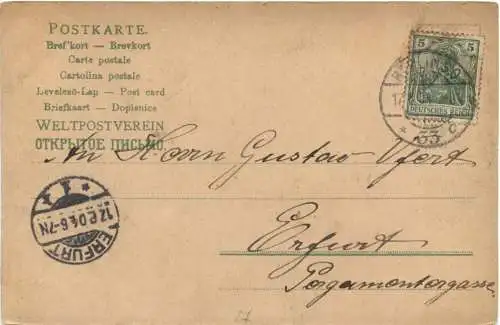 POSTKARTE.
Bref'kort — Brevkort
Carte postale
Cartolina postale
Levelező-Lap — Post card
Briefkaart — Dopisnice
WELTPOSTVEREIN
ОТКРЫТОЕ ПИСЬМО.
5 5
DEUTSCHES REICH
63 c
An Herrn Gustav
17.2.04.6-7N
ERFURT
Erfurt
Pergamentergasse